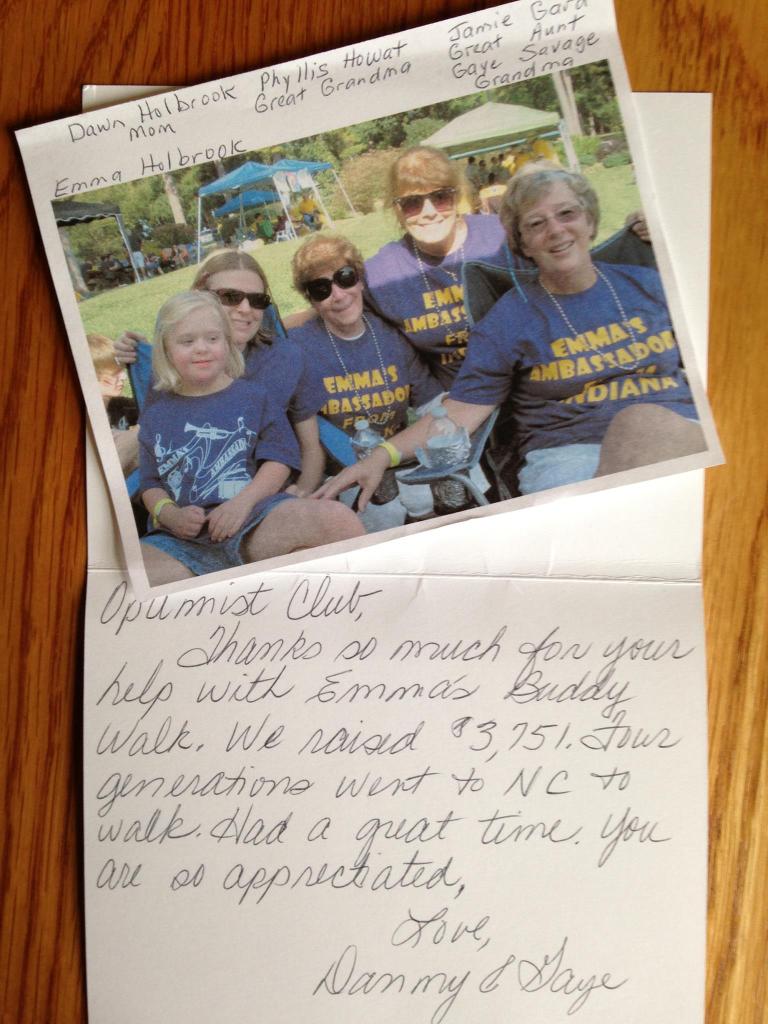 Jamie Gard
Great Aunt
Phyllis Howat
Great Grandma
Gaye Savage
Grandma
Dawn Holbrook
Mom
Emma Holbrook
EMMA'S
AMBASSADOR
INDIANA
EMMA'S
FROM
Optimist Club,
Thanks so much for your
help with Emma's Buddy
Walk. We raised $3,751. Four
generations went to NC to
walk. Had a great time. You
are so appreciated,
Love,
Danny & Gaye